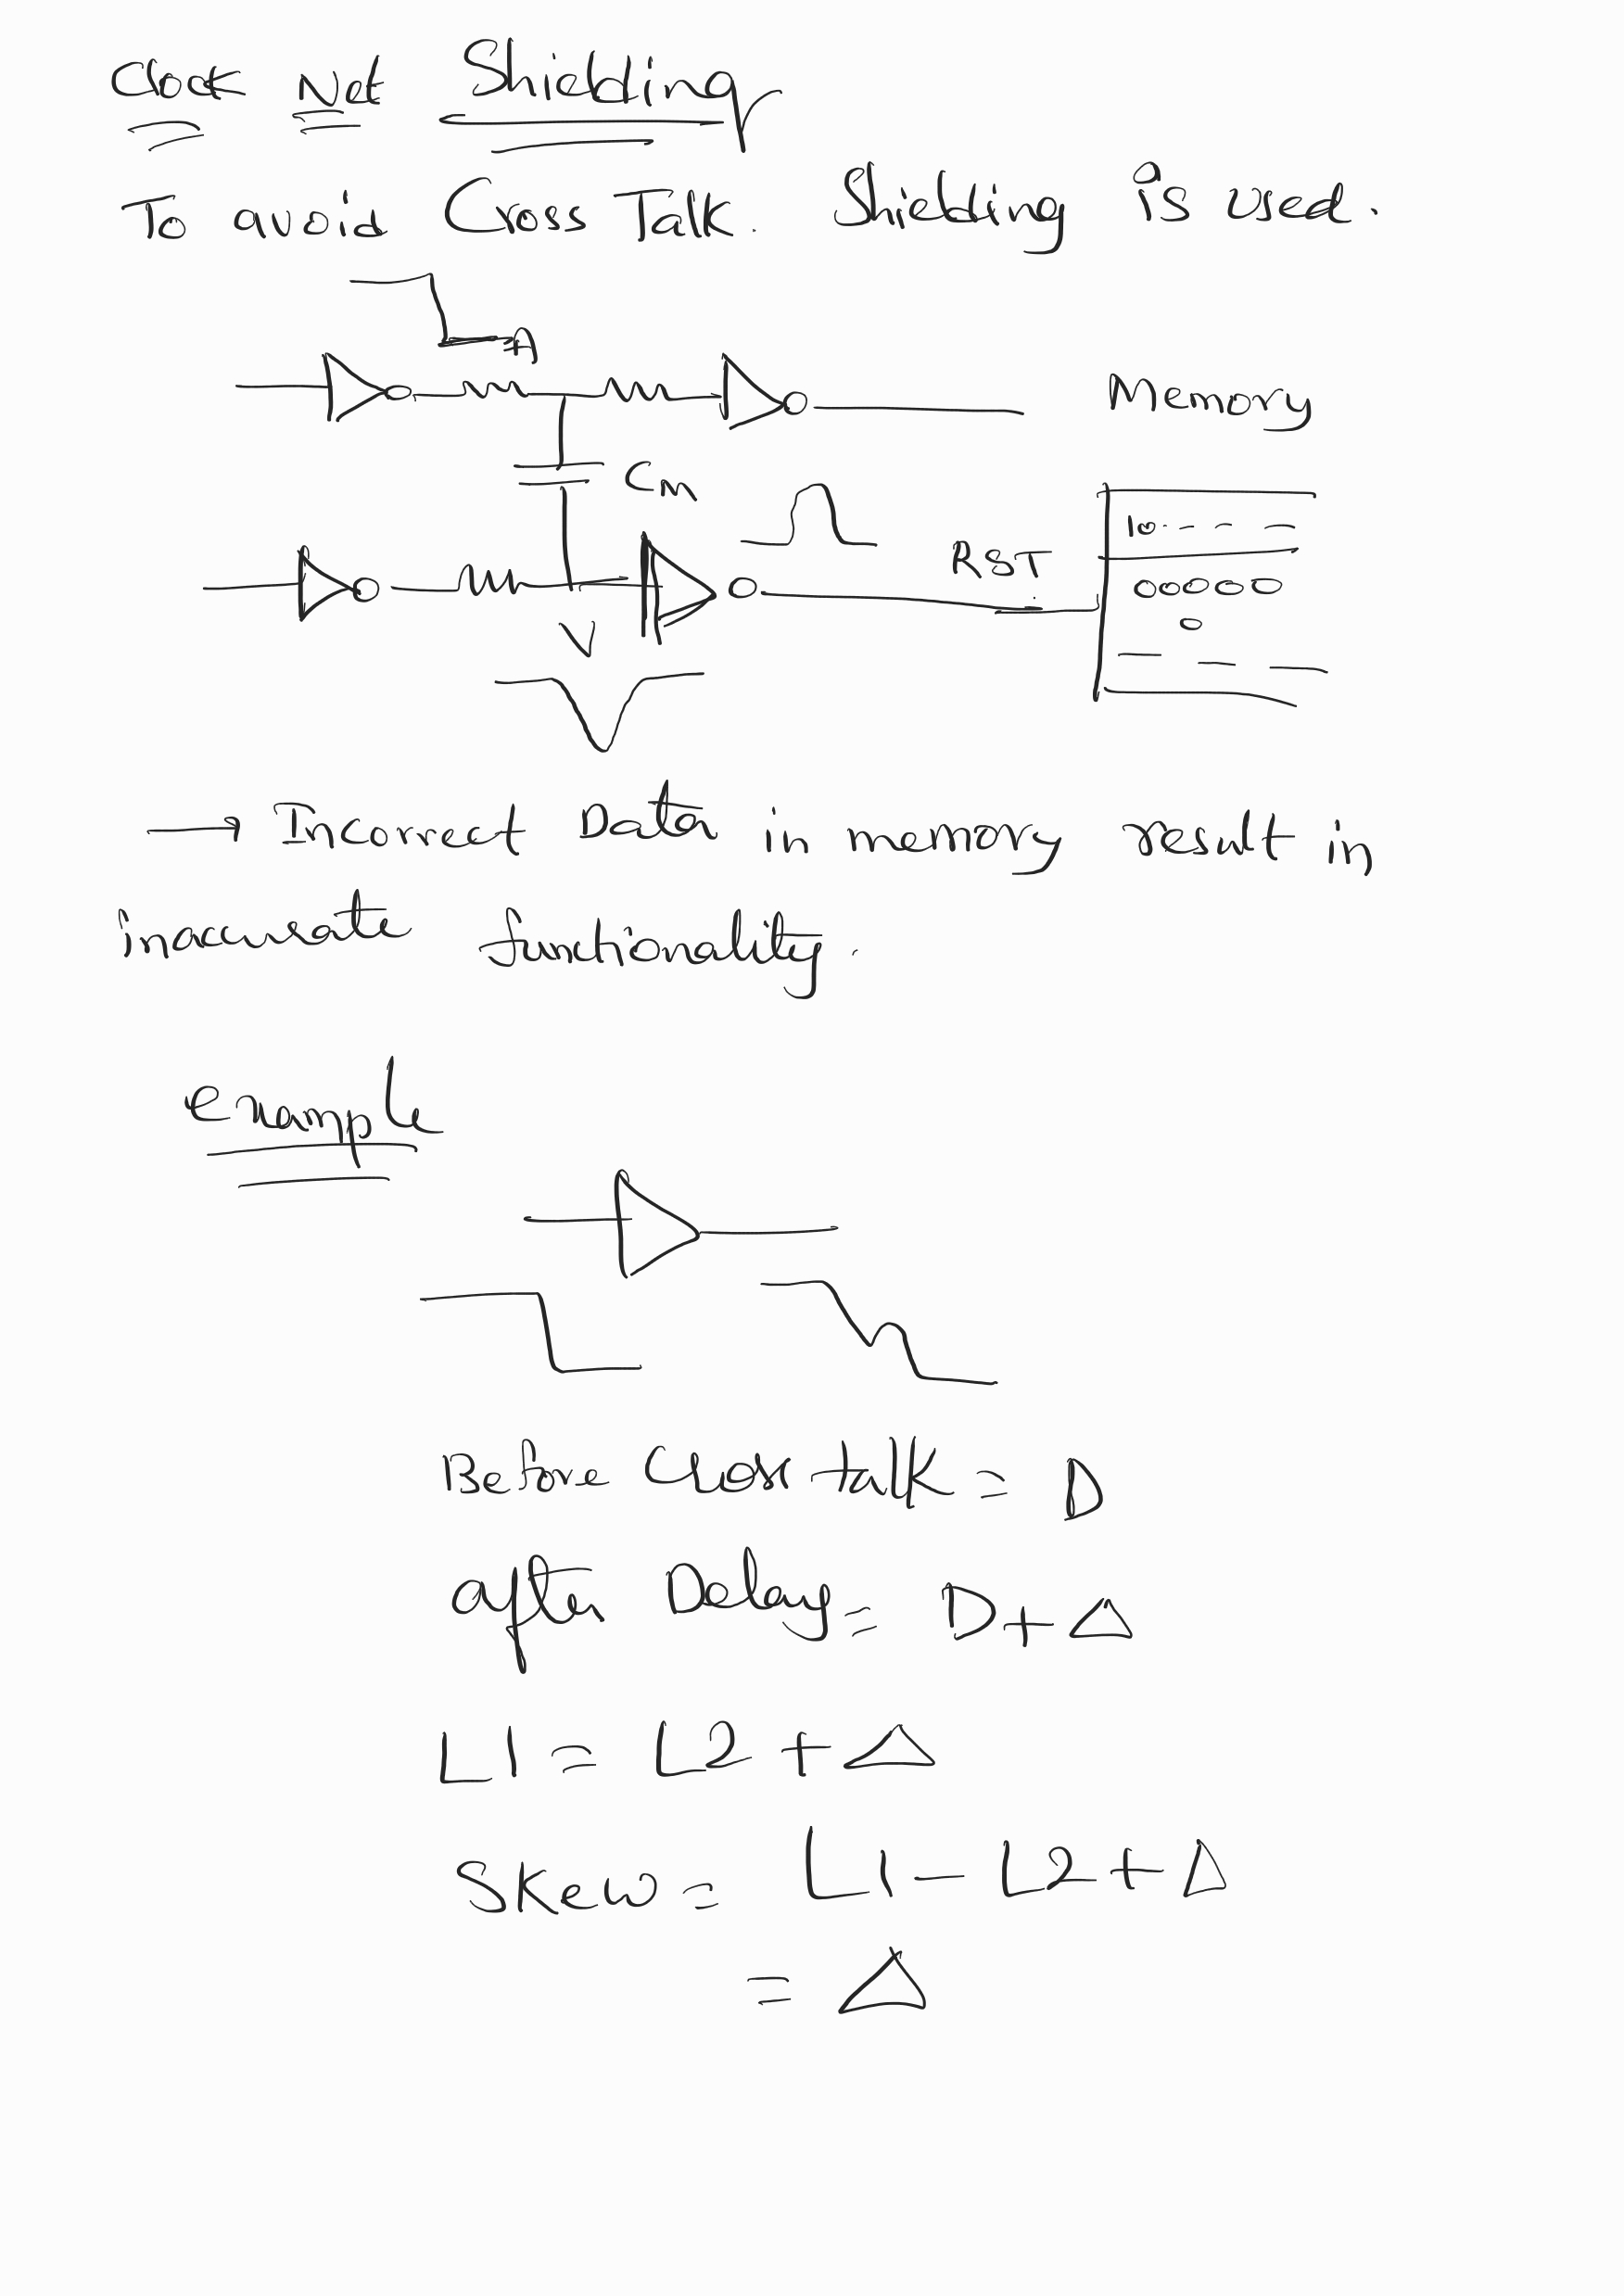 Clock Net Shielding
To avoid Cross Talk. Shielding is used.
A
Memory
Cm
10
RST
00000
0
V
→ Incorrect Data in memory result in
inaccurate functionality.
example
Before Cross talk = D
after Delay = D+Δ
L1 = L2 + Δ
Skew = L1 - L2 + Δ
= Δ